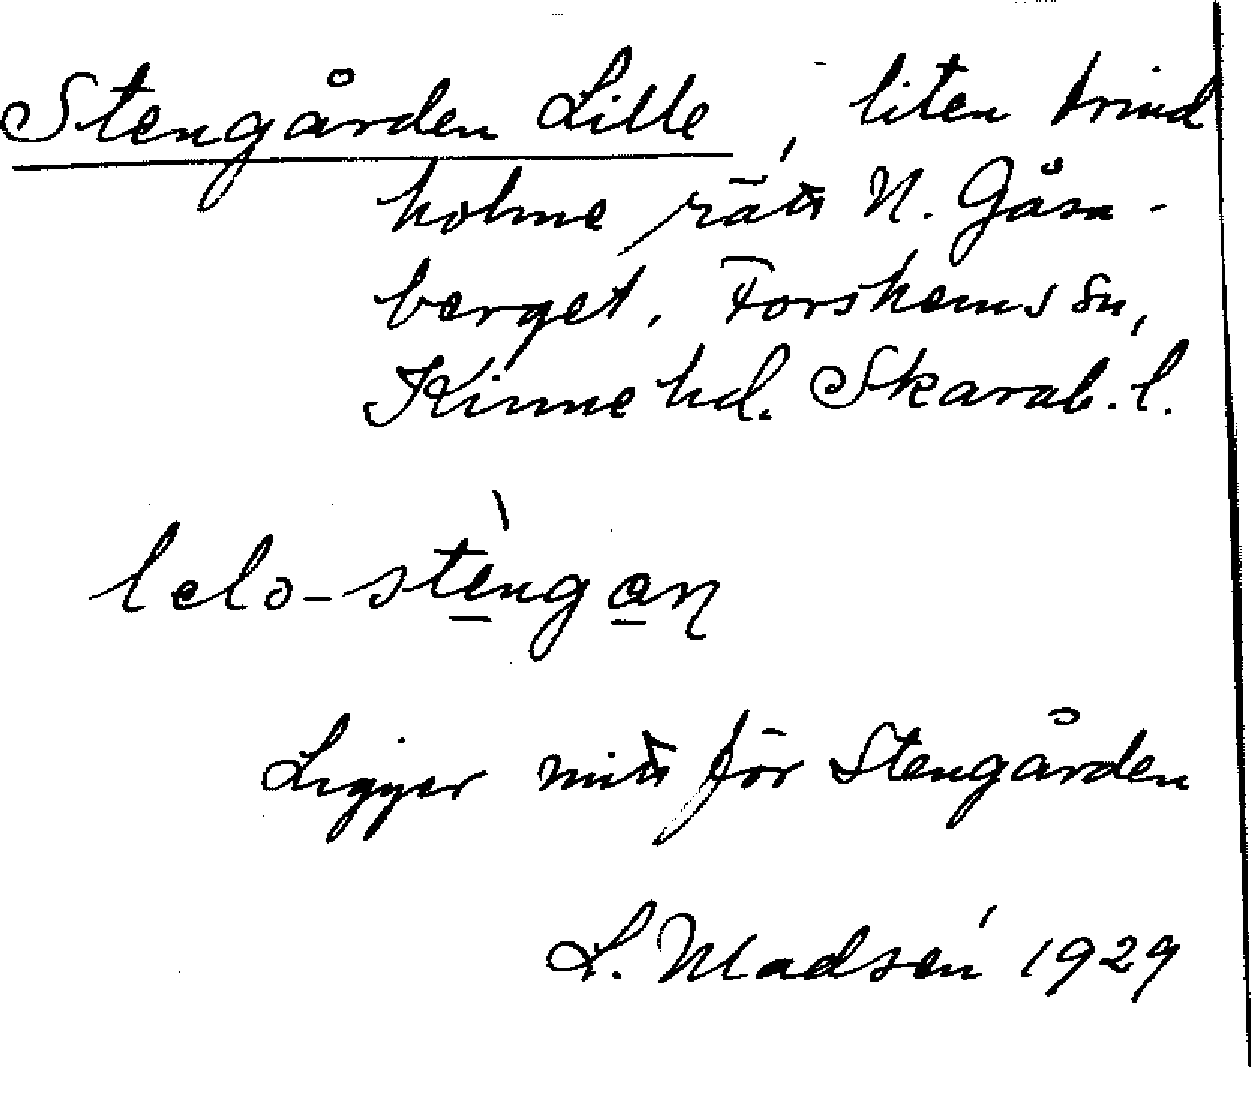 Stengården Lille, liten trind
holme rätt N. Gåsa-
berget. Forshems sn,
Kinne hd. Skarab. l.
lelo-stengan
Ligger mitt för Stengården
L. Madsén 1929